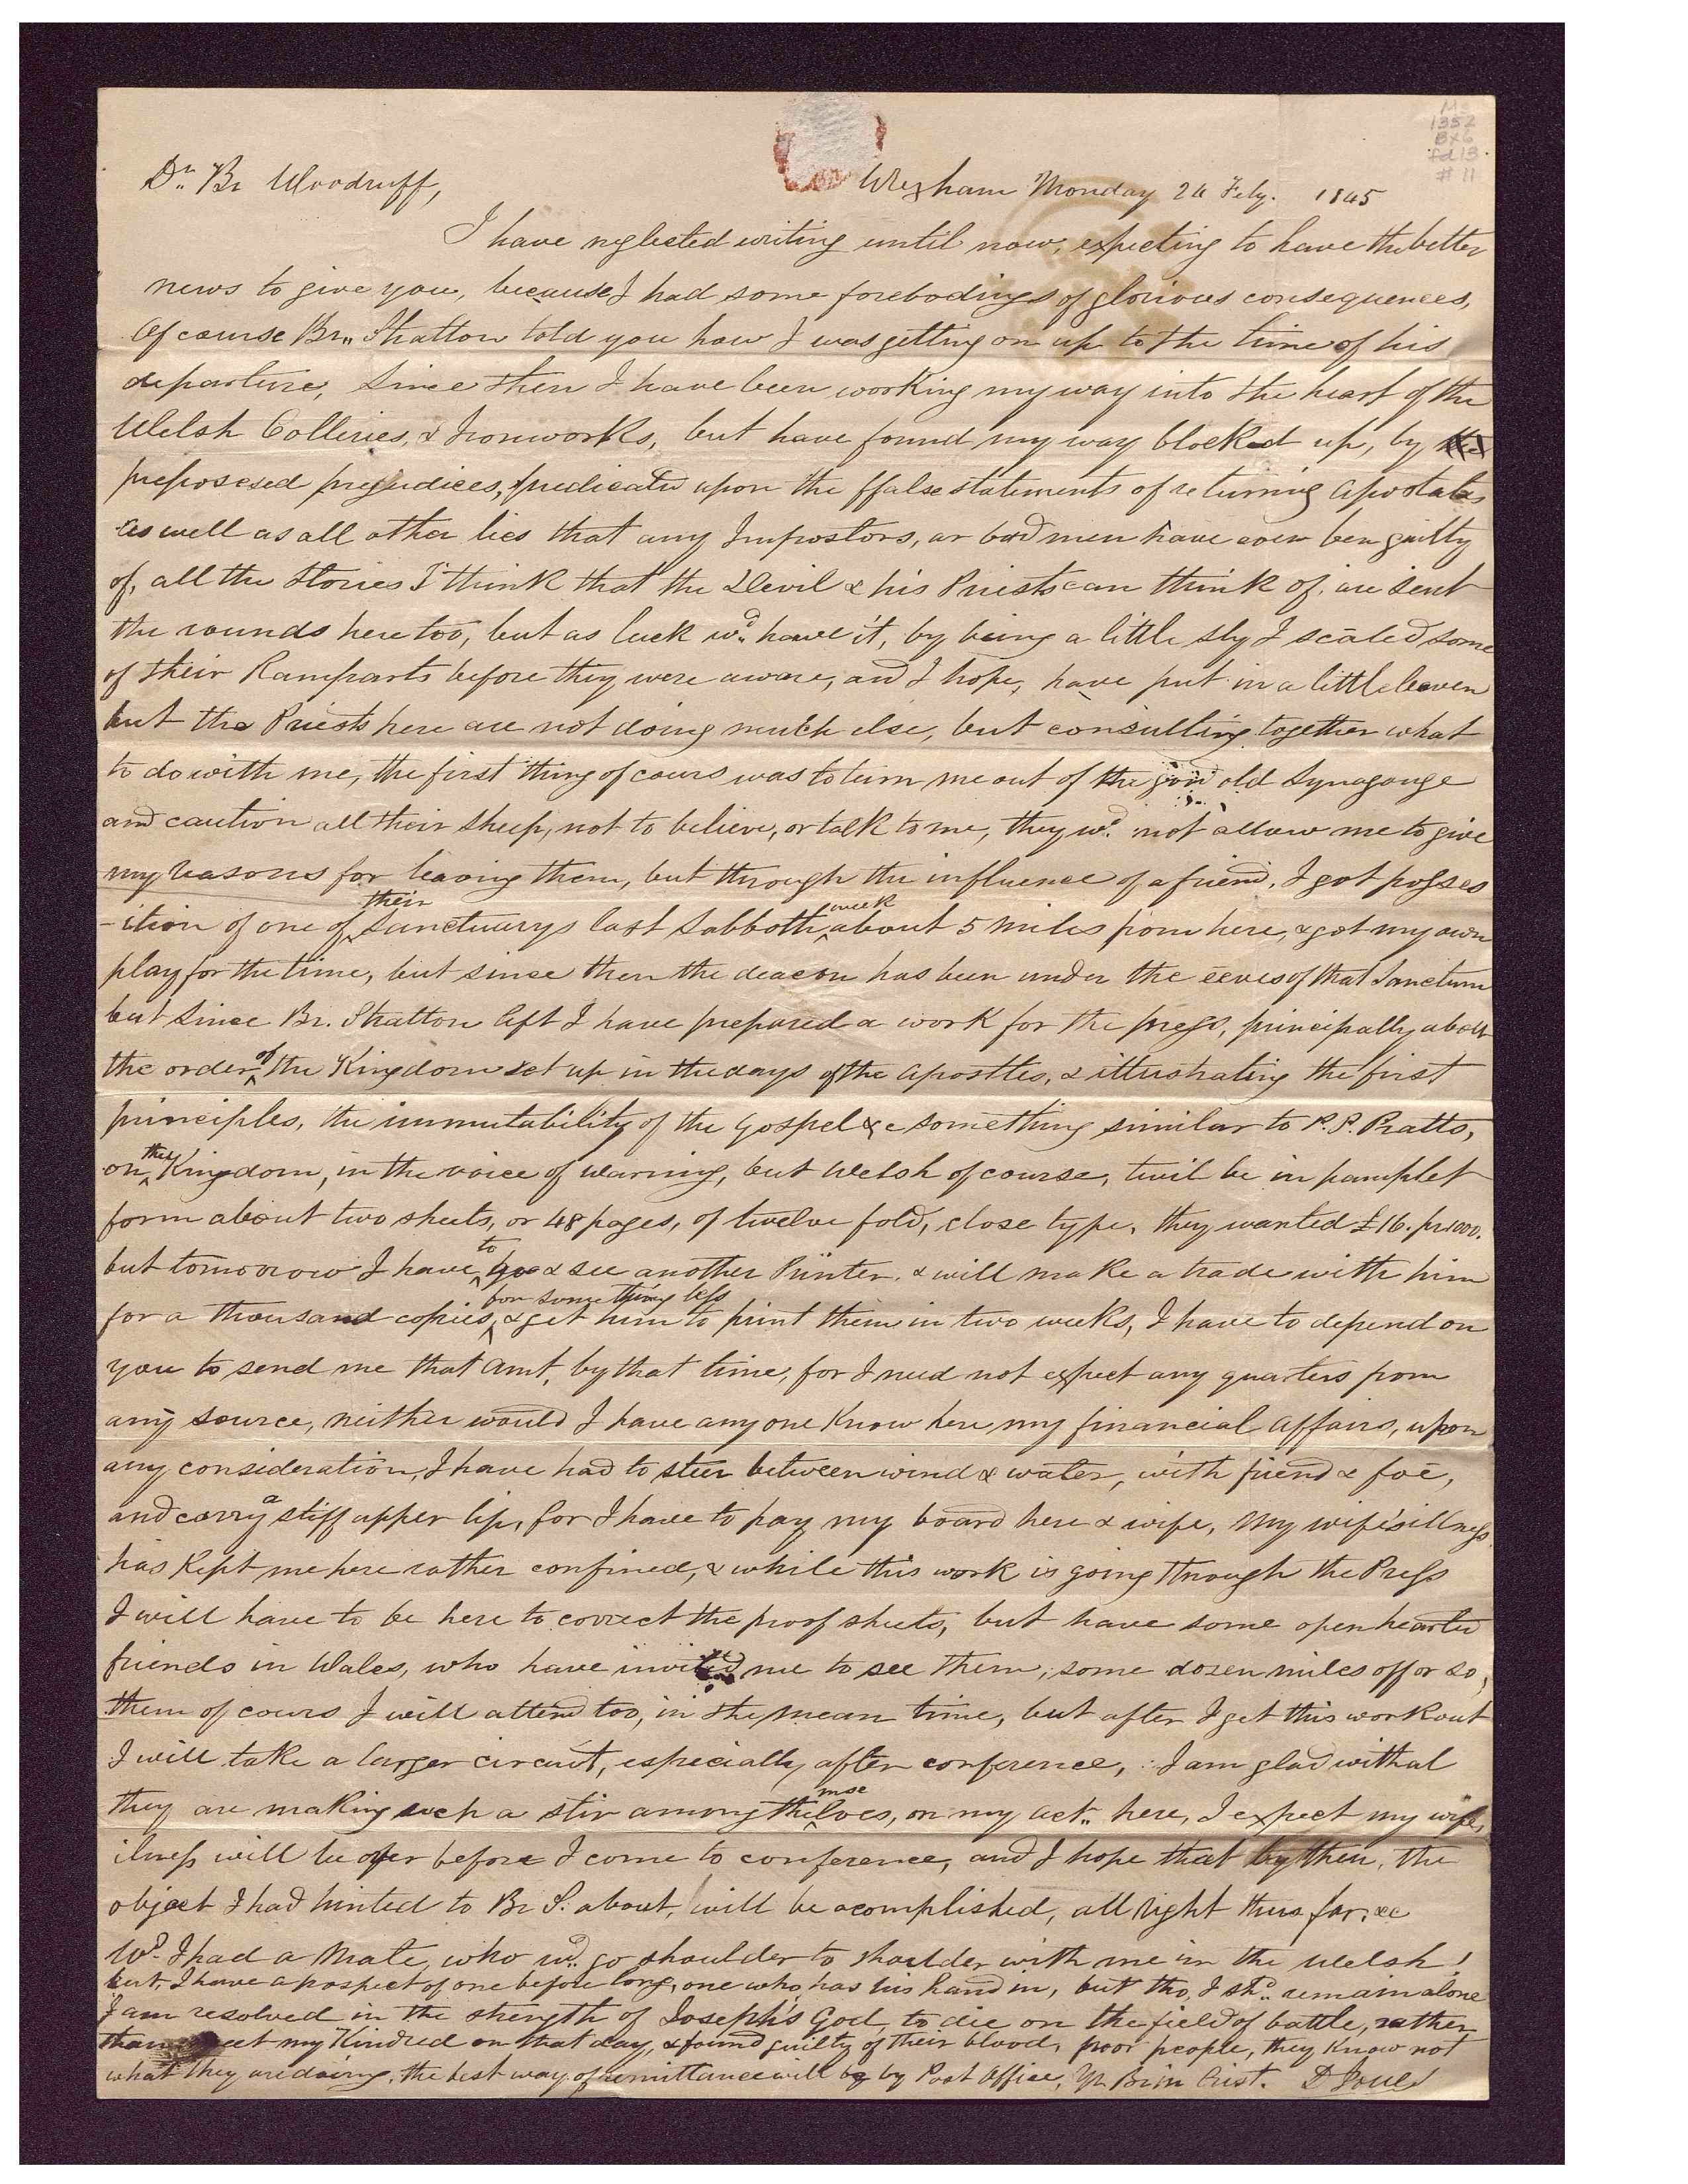 Ms
1352
Bx 6
fd 13
# 11
Dr. Br Woodruff,
Wrexham Monday 24 Feby. 1845
I have neglected writing until now, expecting to have the better
news to give you, because I had some forebodings of glorious consequences,
Of course Br,, Stratton told you how I was getting on up to the time of his
departure, Since then I have been working my way into the heart of the
Welsh Colleries, & Ironworks, but have found my way blocked up, by the
preposesed prejudices, predicated upon the ffalse statements of returning apostates
as well as all other lies that any Impostors, or bad men have ever ben guilty
of, all the Stories I think that the Devil & his Priests can think of, are sent
the rounds here too, but as luck wd. have it, by being a little sly I scaled some
of their Ramparts before they were aware, and I hope, have put in a little leaven
but the Priests here are not doing much else, but consulting together what
to do with me, the first thing of cours was to turn me out of the good old Synagouge
and caution all their Sheep, not to believe, or talk to me, they wd. not allow me to give
my reasons for leaving them, but through the influence of a friend, I got posses
-ition of one of their Sanctuarys last Sabboth week about 5 miles from here, & got my own
play for the time, but since then the deacon has been under the eeves of that Sanctum
but Since Br. Stratton left I have prepared a work for the press, principally about
the order of the Kingdom set up in the days of the apostles, & illustrating the first
principles, the immutability of the Gospel &c something similar to P. P. Pratts,
on the Kingdom, in the voice of warning, but Welsh of course, twil be in pamplet
form about two sheets, or 48 pages, of twelve fold, close type, they wanted £16. pr 1000.
but tomorrow I have to go & see another Printer, & will make a trade with him
for a thousand copies for something less & get him to print them in two weeks, I have to depend on
you to send me that amt, by that time, for I need not expect any quarters from
any source, neither would I have any one know here my financial affairs, upon
any consideration, I have had to steer between wind & water, with friend & foe,
and carry a stiff upper lip, for I have to pay my board here & wife, My wife's illness
has kept me here rather confined, & while this work is going through the Press
I will have to be here to correct the proof sheets, but have some open hearted
friends in Wales, who have invited me to see them, some dozen miles off or so,
them of cours I will attend too, in the mean time, but after I get this work out
I will take a larger circuit, especially after conference, I am glad withal
they are making such a stir among themselves, on my act,, here, I expect my wife,
ilness will be over before I come to conference, and I hope that by then, the
object I had hinted to Br S. about, will be acomplished, all right thus far, &c
Wd. I had a Mate, who wd. go shoulder to shoulder with me in the Welsh!
but, I have a prospect of one before long, one who has his hand in, but tho, I shd. remain alone
I am resolved in the strength of Joseph's God, to die on the field of battle, rather
than meet my Kindred on that day, & found guilty of their blood, poor people, they know not
what they are doing, the best way of remittance will be by Post Office, Yr Br in Crist. D Jones